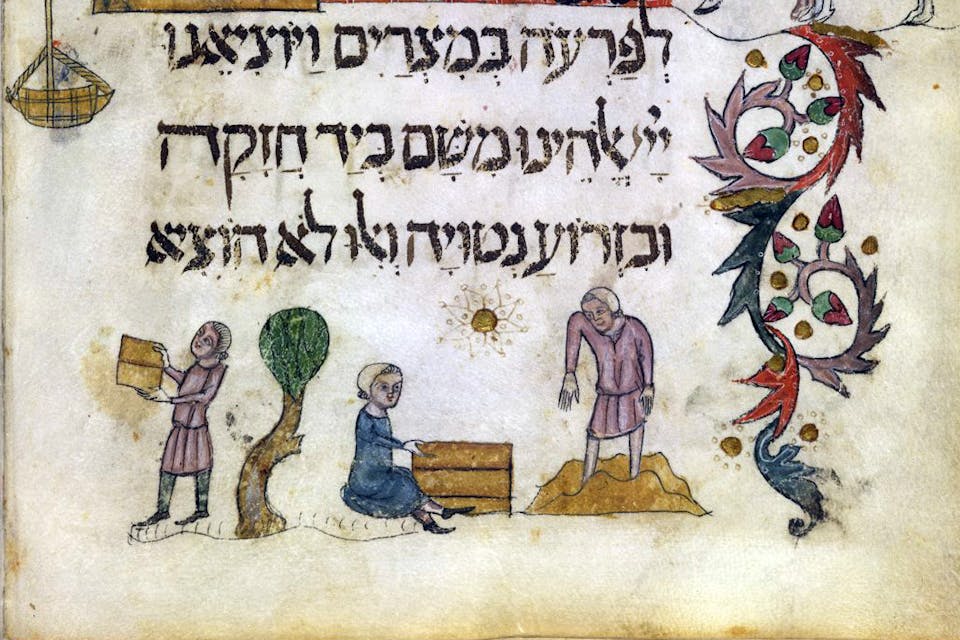 לְפַרְעֹה בְּמִצְרַיִם וַיּוֹצִיאֵנוּ
יְיָ אֱלֹהֵינוּ מִשָּׁם בְּיָד חֲזָקָה
וּבִזְרוֹעַ נְטוּיָה וְאִלּוּ לֹא הוֹצִיא